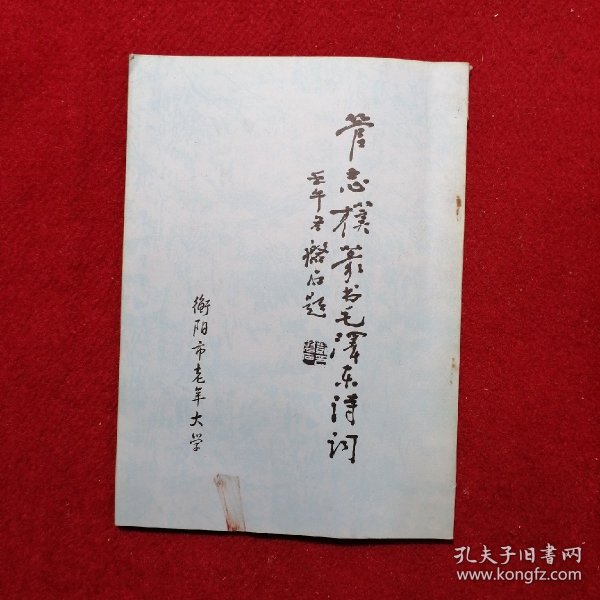 管志朴篆书毛泽东诗词
壬午冬 石题
衡阳市老年大学
孔夫子旧书网
www.kongfz.com